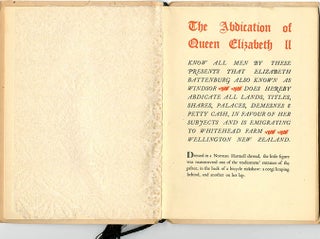 The Abdication of
Queen Elizabeth II
KNOW ALL MEN BY THESE
PRESENTS THAT ELIZABETH
BATTENBURG ALSO KNOWN AS
WINDSOR DOES HEREBY
ABDICATE ALL LANDS, TITLES,
SHARES, PALACES, DEMESNES &
PETTY CASH, IN FAVOUR OF HER
SUBJECTS AND IS EMIGRATING
TO WHITEHEAD FARM
WELLINGTON NEW ZEALAND.
Dressed in a Norman Hartnell shroud, the little figure
was manoeuvred out of the tradesmens' entrance of the
palace, in the back of a bicycle rickshaw: a corgi limping
behind, and another on her lap.